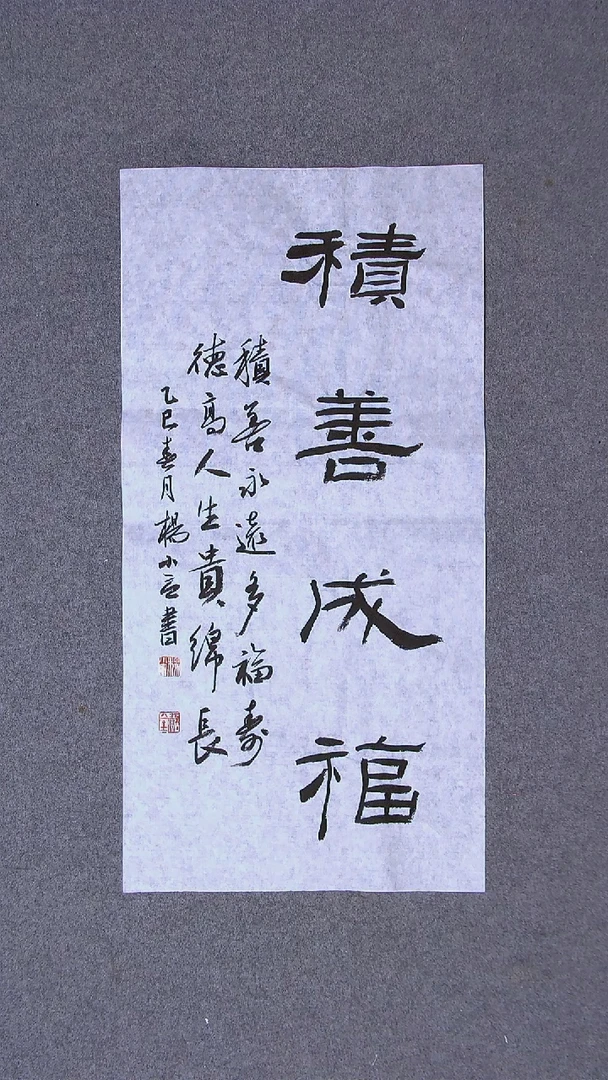 積善成福
積善永遠多福壽
德高人生貴綿長
乙巳春月楊小言書